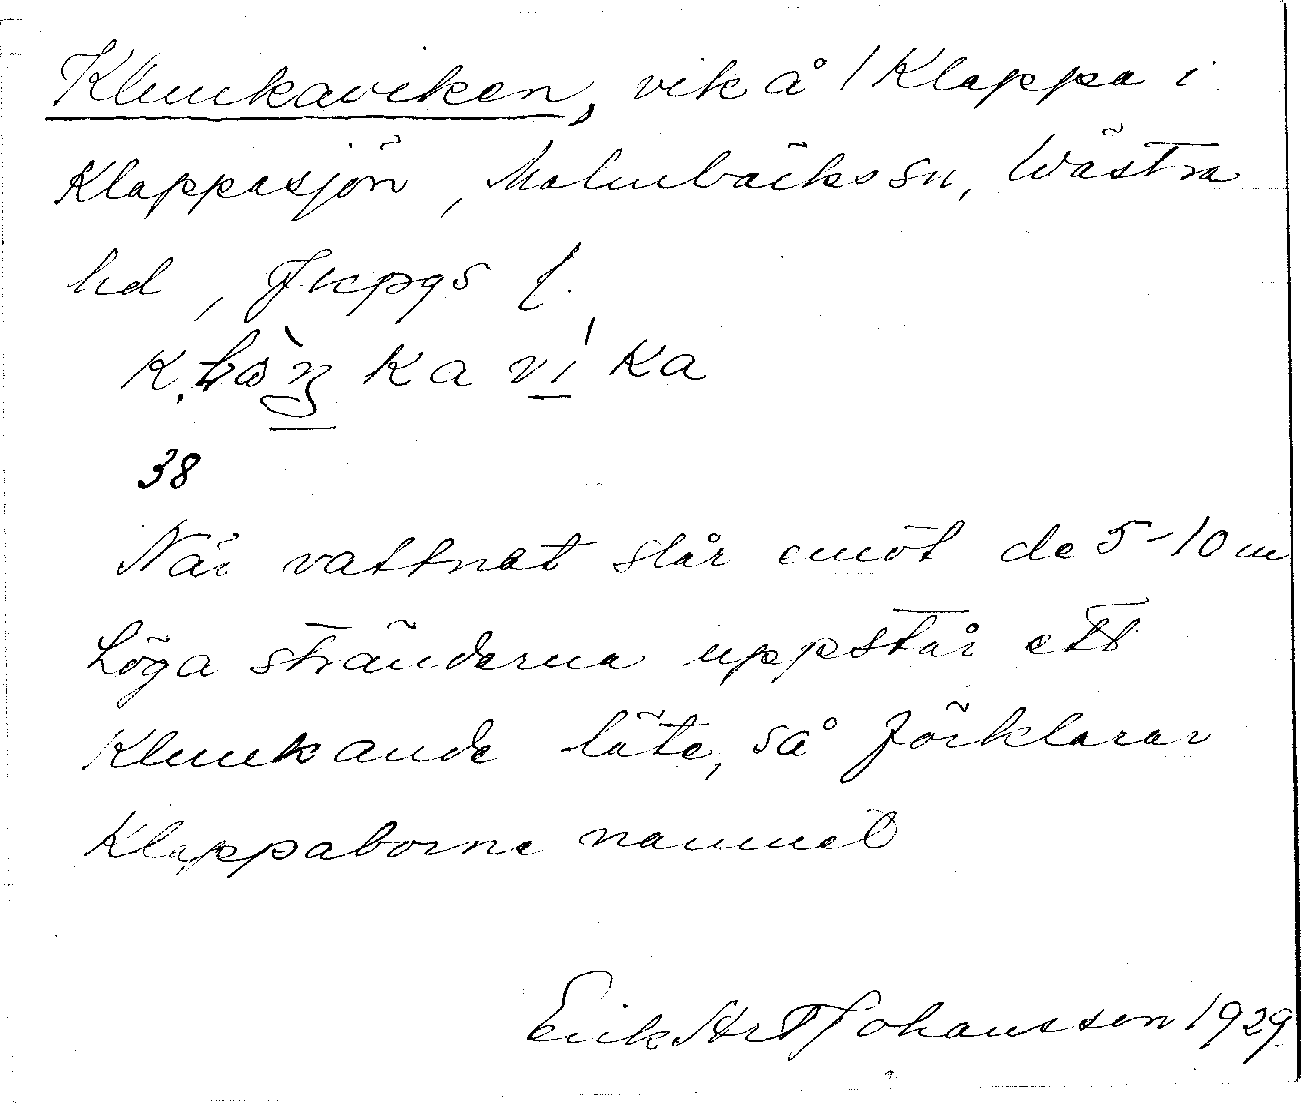 Klunkaviken, vik å / Klappa i
Klappasjön, Malmbäcks sn, Västra
hd, Jkpgs l.
38
När vattnet slår emot de 5-10 m
höga stränderna uppstår ett
klunkande läte, så förklarar
Klappaborna namnet
Erik Art Johansson 1929